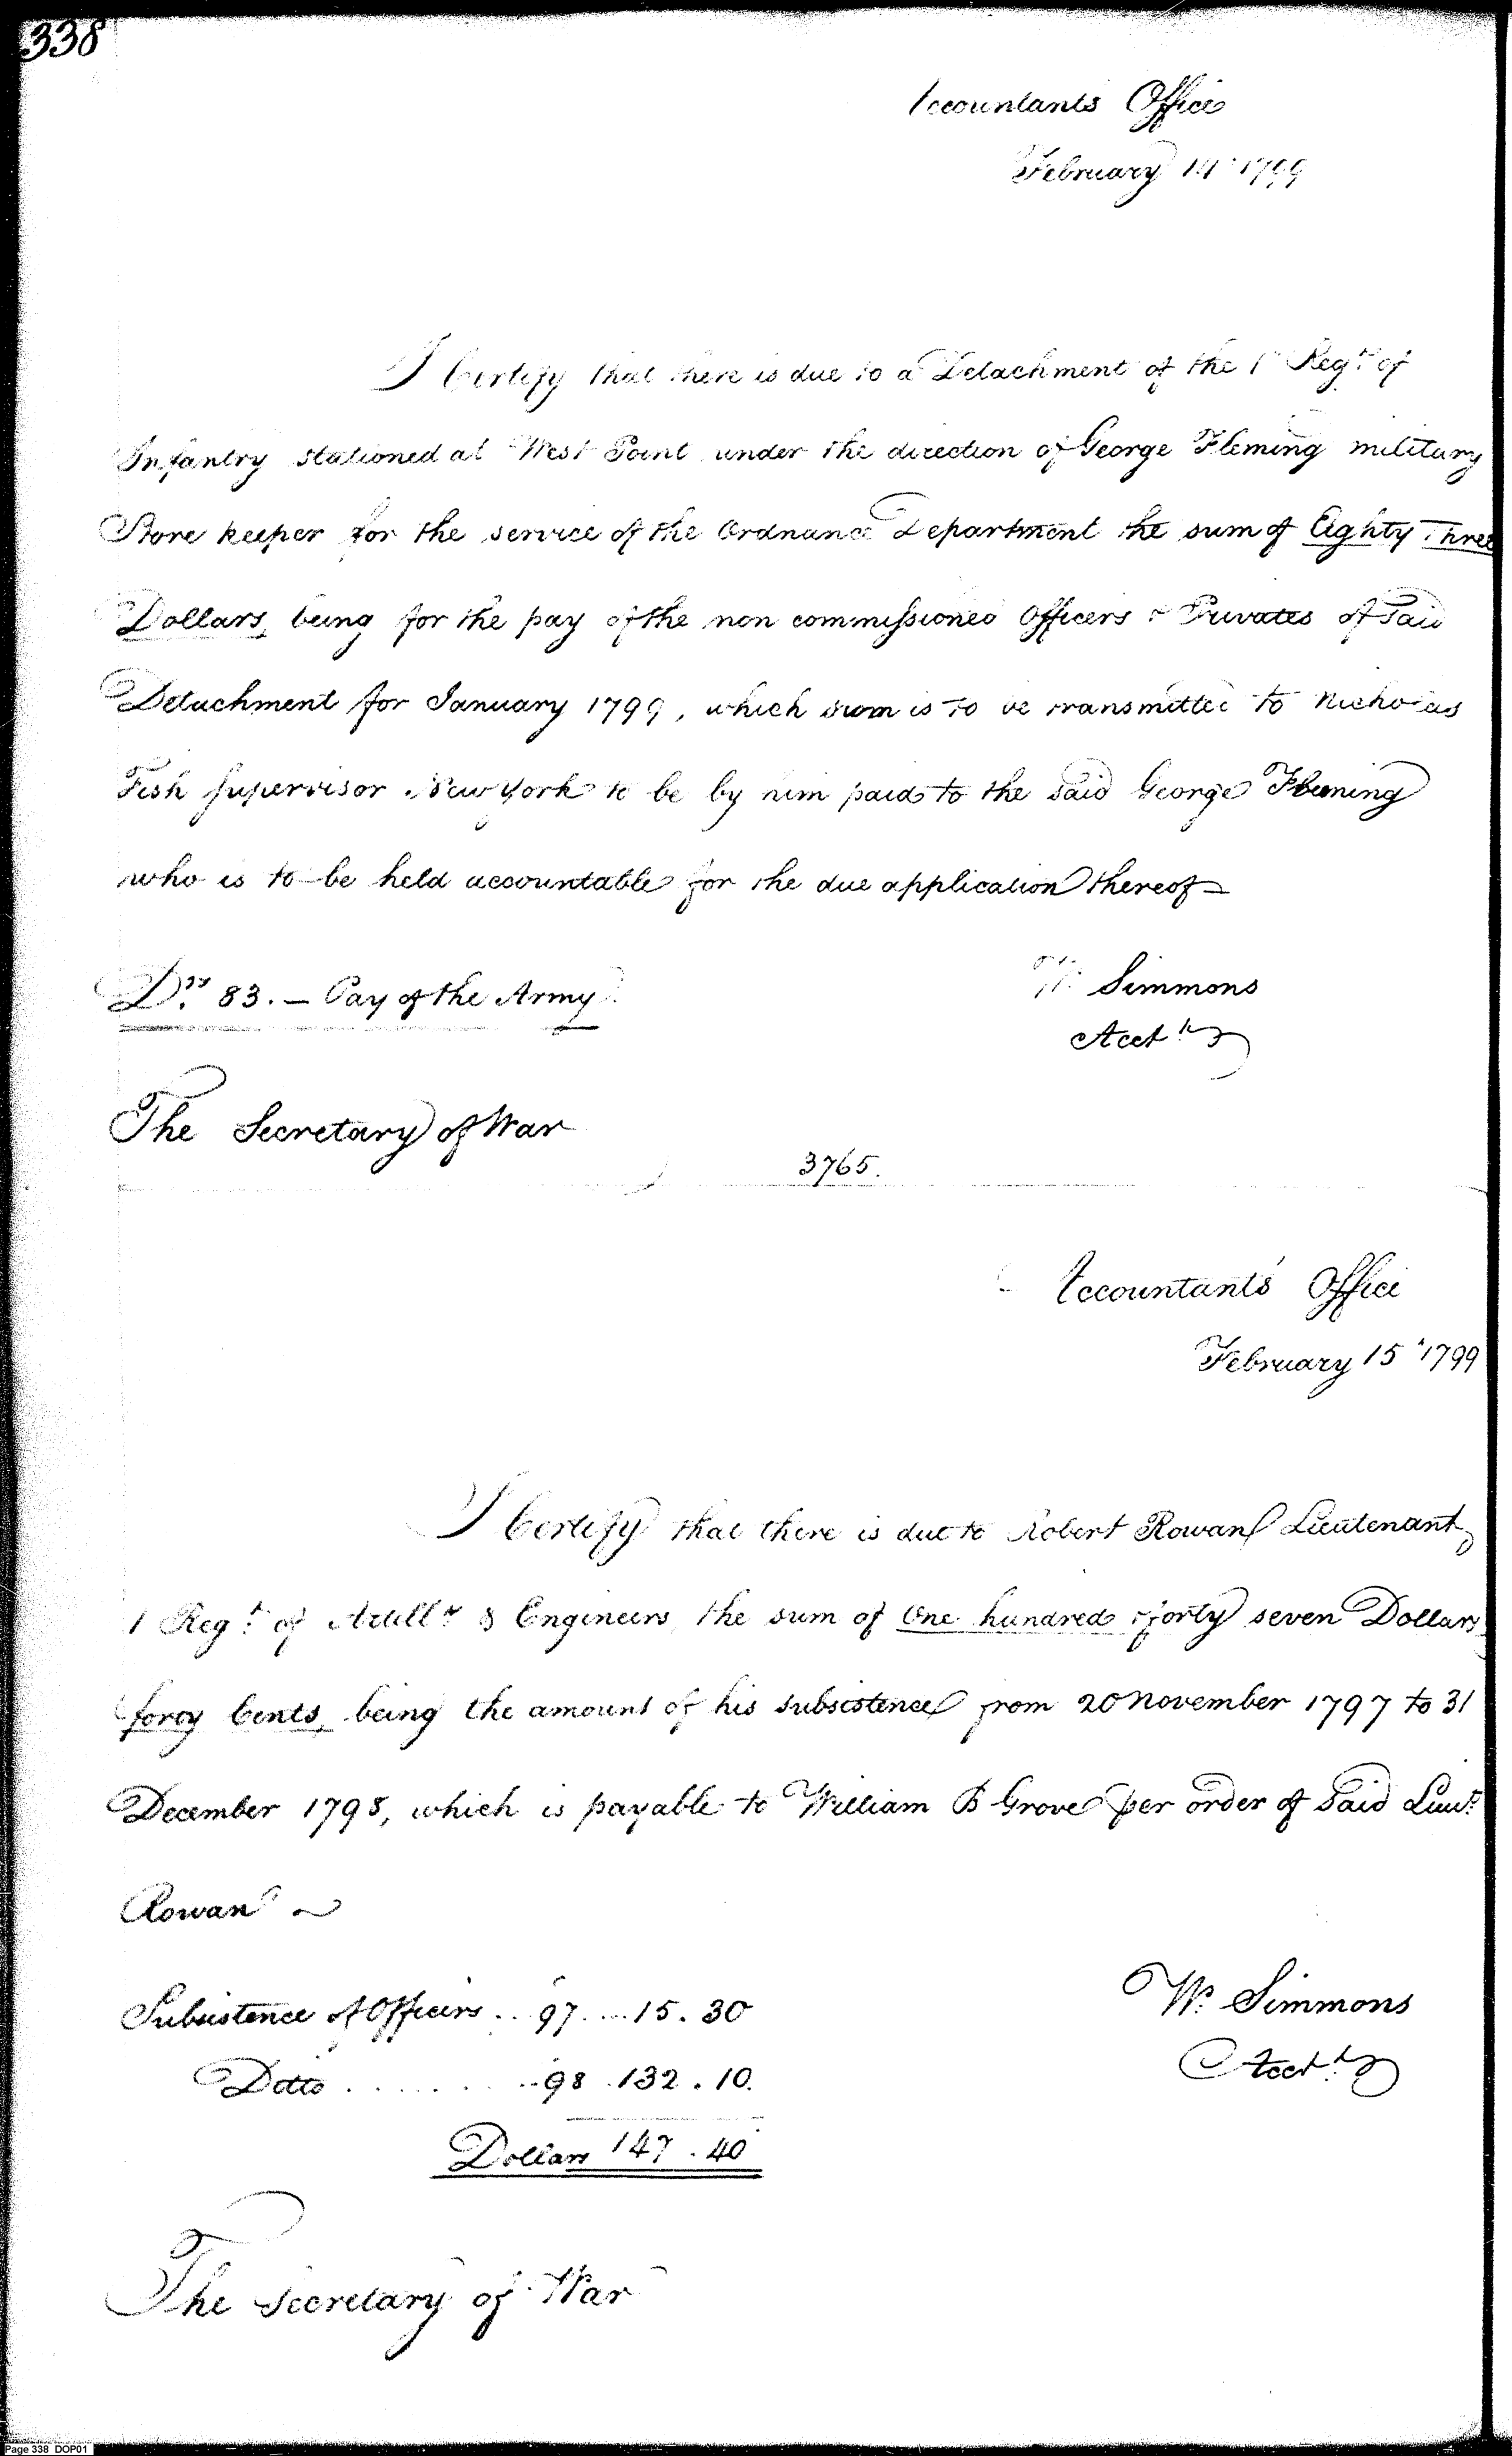 338
Accountants Office
February 14 1799
I Certify that there is due to a Detachment of the 1 Regt. of
Infantry stationed at West Point under the direction of George Fleming military
Store keeper for the service of the Ordnance Department the sum of Eighty Three
Dollars, being for the pay of the non commissioned Officers & Privates of said
Detachment for January 1799, which sum is to be transmitted to Nicholas
Fish Supervisor New York to be by him paid to the said George Fleming
who is to be held accountable for the due application thereof
Drs. 83. — Pay of the Army
W. Simmons
Acctt.
The Secretary of War
3765.
Accountant's Office
February 15 1799
I Certify that there is due to Robert Rowan Lieutenant
1 Regt. of Artillr & Engineers, the sum of One hundred & forty seven Dollars
forty Cents, being the amount of his subsistence from 20 November 1797 to 31
December 1798, which is payable to William B Grove per order of said Lieut.
Rowan ~
Subsistence of Officers .. 97 .... 15 . 30
W. Simmons
Ditto . . . . . . . 98 . 132 . 10.
Acctt.
Dollars 147 . 40
The Secretary of War
Page 338 DOP01